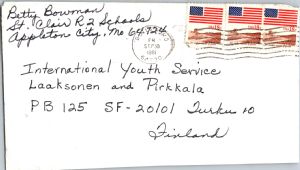 Betty Bowman
St. Clair R2 Schools
Appleton City, Mo 64724
PM
SEP 30
1981
International Youth Service
Laaksonen and Pirkkala
PB 125 SF-20101 Turku 10
Finland